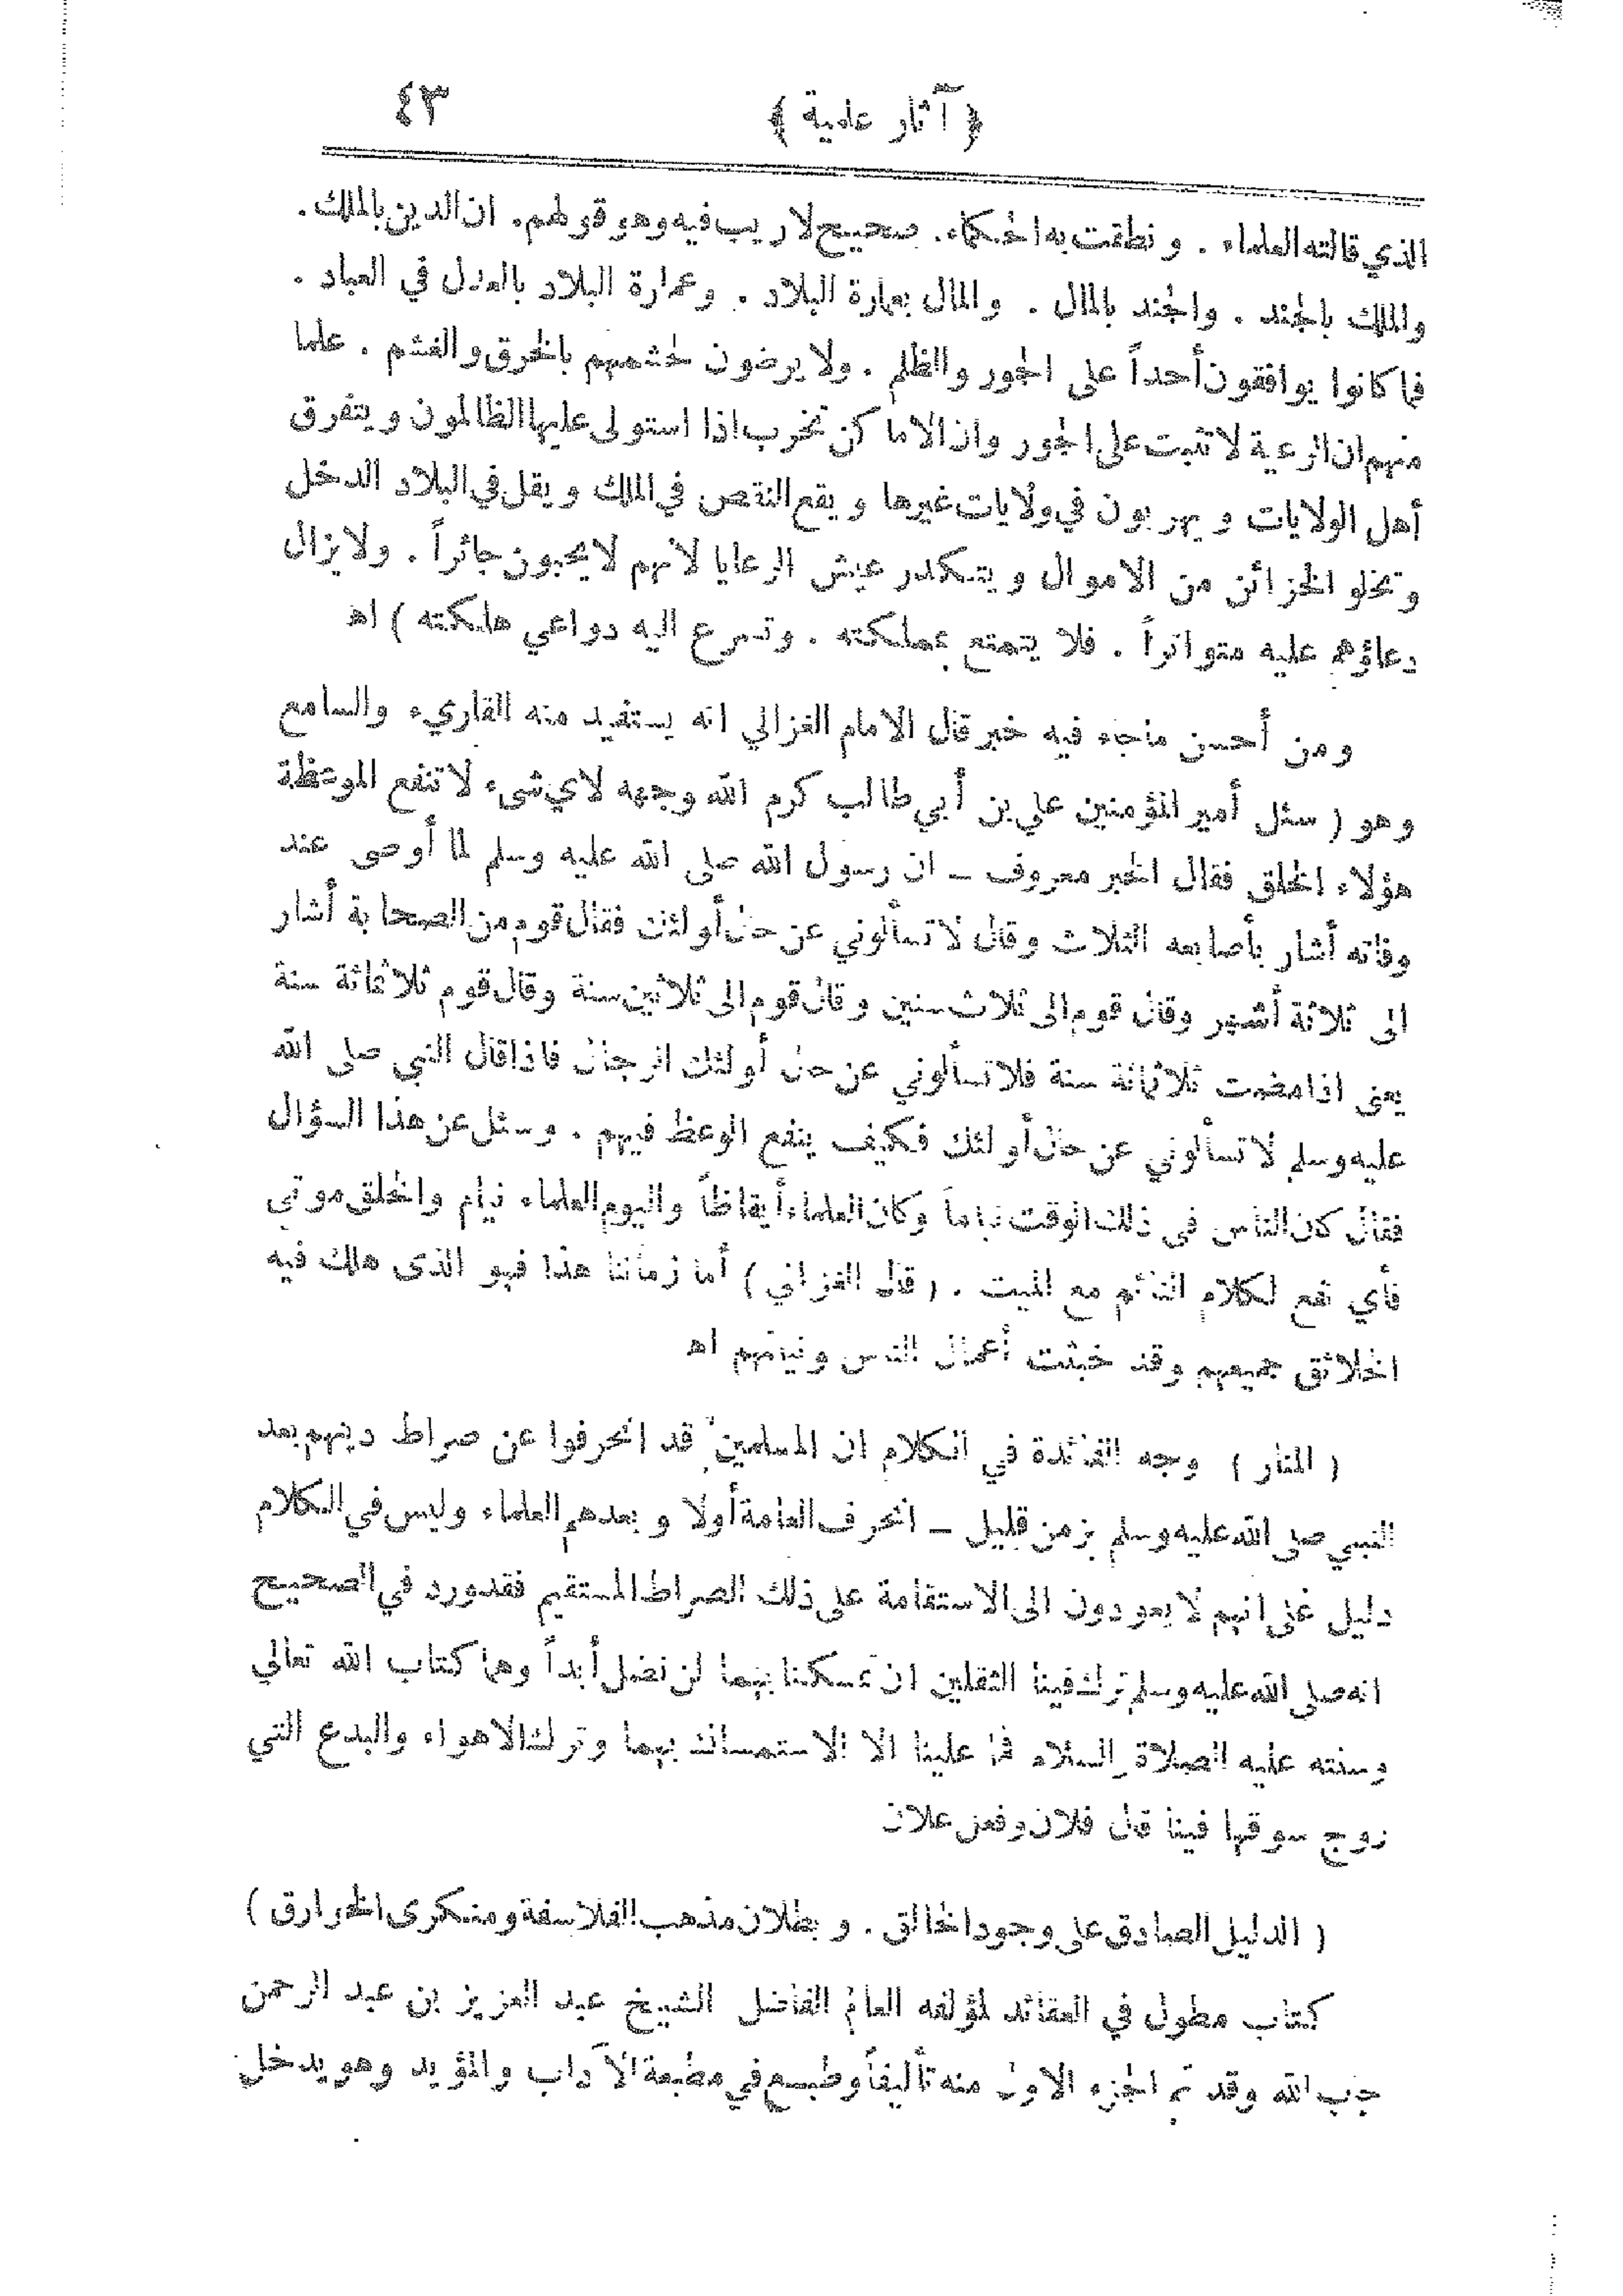 ﴿ آثار علمية ﴾ ٤٣
الذي قالته العلماء . ونطقت به الحكماء. صحيح لا ريب فيه وهو قولهم. ان الدين بالملك .
والملك بالجند . والجند بالمال . والمال بعمارة البلاد . وعمارة البلاد بالعدل في العباد .
فما كانوا يوافقون أحداً على الجور والظلم . ولا يرضون لحشمهم بالخرق والغشم . علما
منهم ان الرعية لا تثبت على الجور وان الاماكن تخرب اذا استولى عليها الظالمون ويتفرق
أهل الولايات ويهربون في ولايات غيرها ويقع النقص في الملك ويقل في البلاد الدخل
وتخلو الخزائن من الاموال ويتكدر عيش الرعايا لانهم لا يحبون جائراً . ولا يزال
دعاؤهم عليه متواتراً . فلا يتمتع بمملكته . وتسرع اليه دواعي هلكته ) اهـ
ومن أحسن ماجاء فيه خبر قال الامام الغزالي انه يستفيد منه القاريء والسامع
وهو ( سئل أمير المؤمنين علي بن أبي طالب كرم الله وجهه لاي شيء لا تنفع الموعظة
هؤلاء الخلق فقال الخبر معروف ــ ان رسول الله صلى الله عليه وسلم لما أوصى عند
وفاته أشار بأصابعه الثلاث وقال لا تسألوني عن حال أولئك فقال قوم من الصحابة أشار
الى ثلاثة أشهر وقال قوم الى ثلاث سنين وقال قوم الى ثلاثين سنة وقال قوم ثلاثمائة سنة
يعنى اذا مضت ثلاثمائة سنة فلا تسألوني عن حال أولئك الرجال فاذا قال النبي صلى الله
عليه وسلم لا تسألوني عن حال أولئك فكيف ينفع الوعظ فيهم . وسئل عن هذا السؤال
فقال كان الناس في ذلك الوقت نياماً وكان العلماء أيقاظاً واليوم العلماء نيام والخلق موتى
فأي نفع لكلام النائم مع الميت . ( قال الغزالي ) أما زماننا هذا فهو الذى هلك فيه
الخلائق جميعهم وقد خبثت أعمال الناس ونياتهم اهـ
( المنار ) وجه الفائدة في الكلام ان المسلمين قد انحرفوا عن صراط دينهم بعد
النبي صلى الله عليه وسلم بزمن قليل ــ انحرف العامة أولا وبعدهم العلماء وليس في الكلام
دليل على انهم لا يعودون الى الاستقامة على ذلك الصراط المستقيم فقد ورد في الصحيح
انه صلى الله عليه وسلم ترك فينا الثقلين ان تمسكنا بهما لن نضل أبداً وهما كتاب الله تعالي
وسنته عليه الصلاة والسلام فما علينا الا الاستمساك بهما وترك الاهواء والبدع التي
روج سوقها فينا قال فلان وفعل علان
( الدليل الصادق على وجود الخالق . وبطلان مذهب الفلاسفة ومنكرى الخوارق )
كتاب مطول في العقائد لمؤلفه العالم الفاضل الشيخ عبد العزيز بن عبد الرحمن
جب الله وقد تم الجزء الاول منه تأليفاً وطبع في مطبعة الآداب والمؤيد وهو يدخل